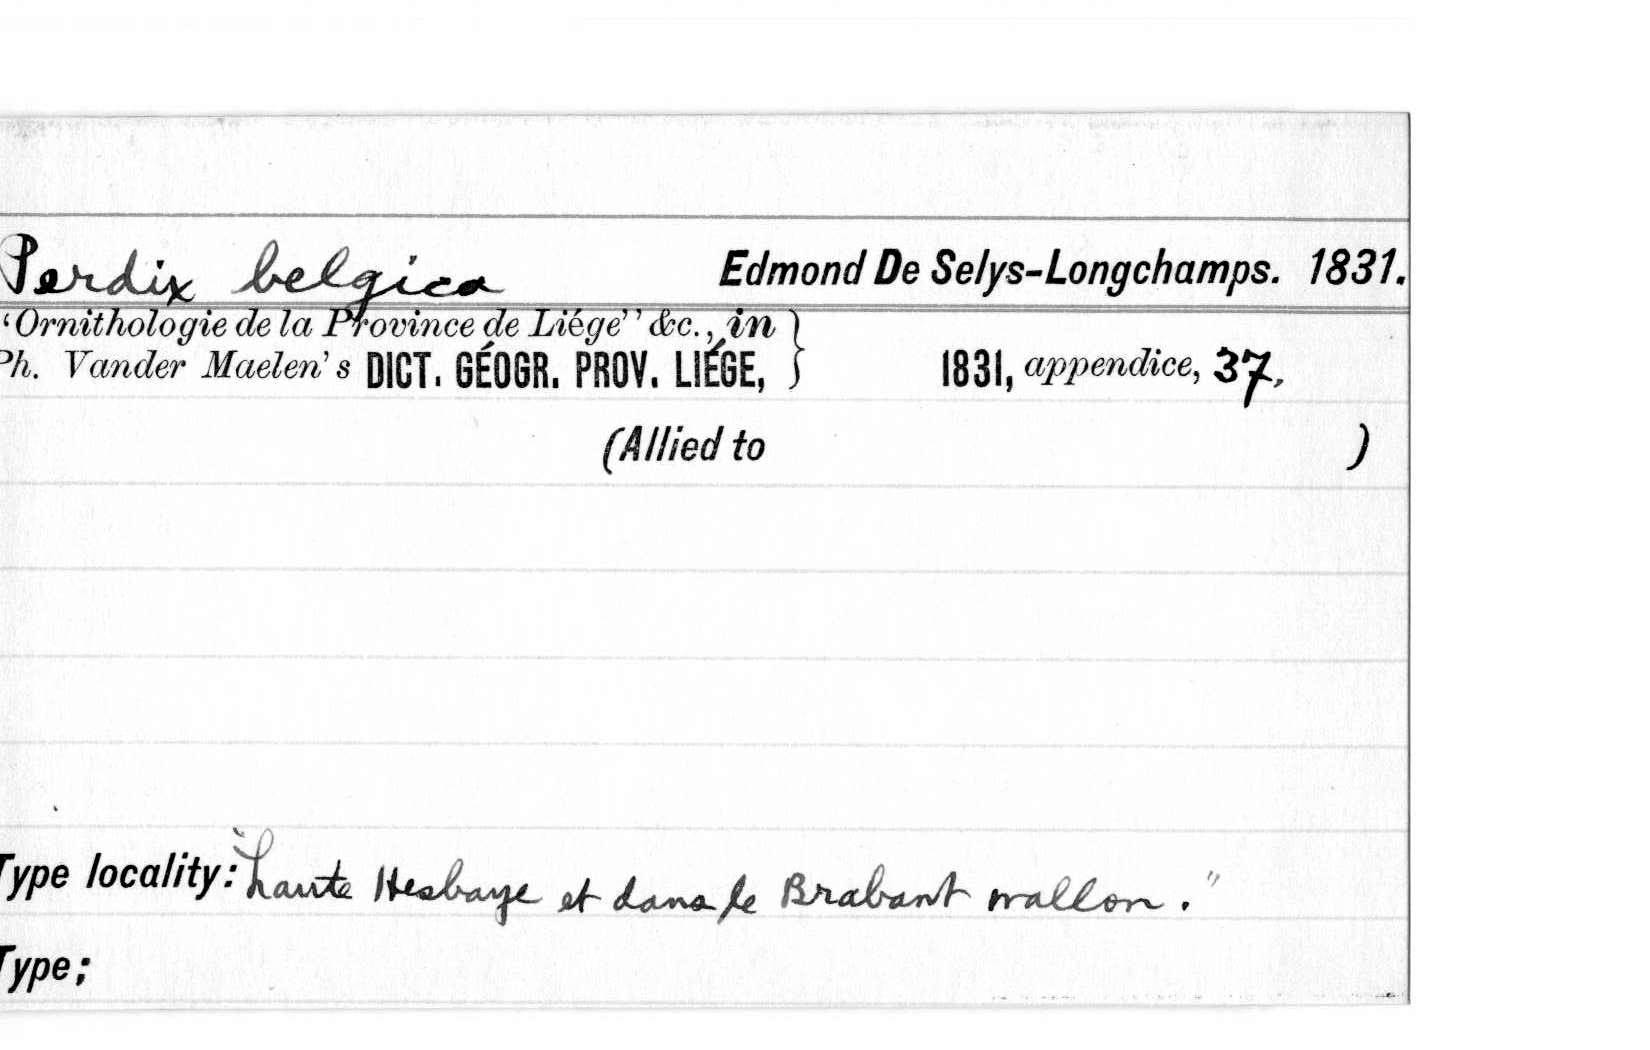 Perdix belgica Edmond De Selys-Longchamps. 1831.
‘Ornithologie de la Province de Liége’’ &c., in }
Ph. Vander Maelen's DICT. GÉOGR. PROV. LIÉGE, } 1831, appendice, 37.
(Allied to )
Type locality: "haute Hesbaye et dans le Brabant wallon."
Type;